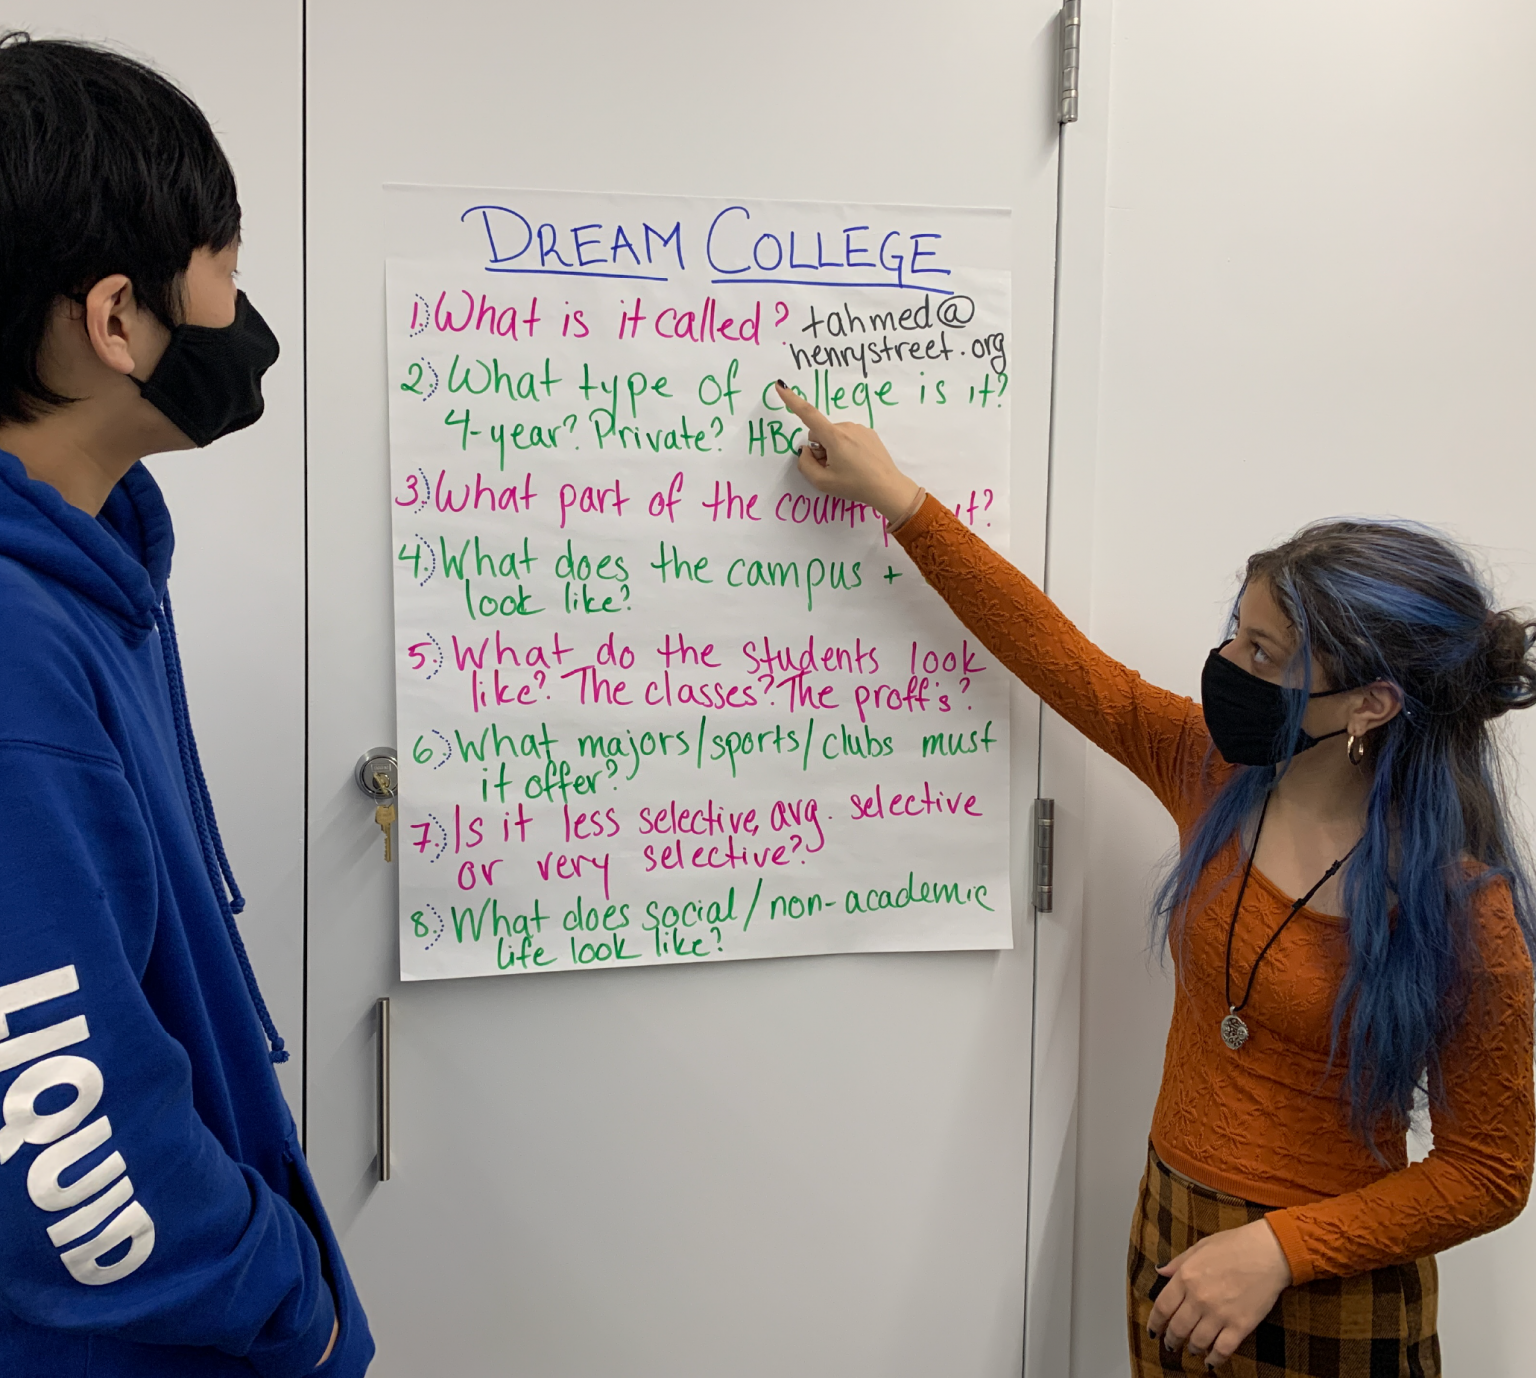 DREAM COLLEGE
1.) What is it called? tahmed@
henrystreet.org
2.) What type of college is it?
4-year? Private?
3.) What part of the country it?
4.) What does the campus +
look like?
5.) What do the students look
like? The classes? The proff's?
6.) What majors/sports/clubs must
it offer?
7.) Is it less selective, avg. selective
or very selective?
8.) What does social/non-academic
life look like?
LIQUID